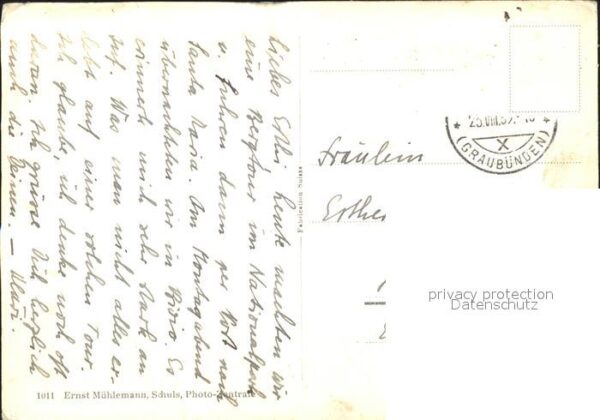 Liebes Esthi, heute machten wir
eine Bergtour im Nationalpark
u. fuhren dann per Post nach
Santa Maria. Am Montagabend
übernachteten wir in Bivio. Es
erinnerte mich sehr stark an
Juf. Was man nicht alles er-
lebt auf einer solchen Tour.
Ich glaube, ich denke noch oft
daran. Ich grüsse Dich herzlich
auch die Deinen. –
Fabrication Suisse
1011 Ernst Mühlemann, Schuls, Photo-Zentrale
(GRAUBÜNDEN)
Fräulein
Esther
privacy protection
Datenschutz